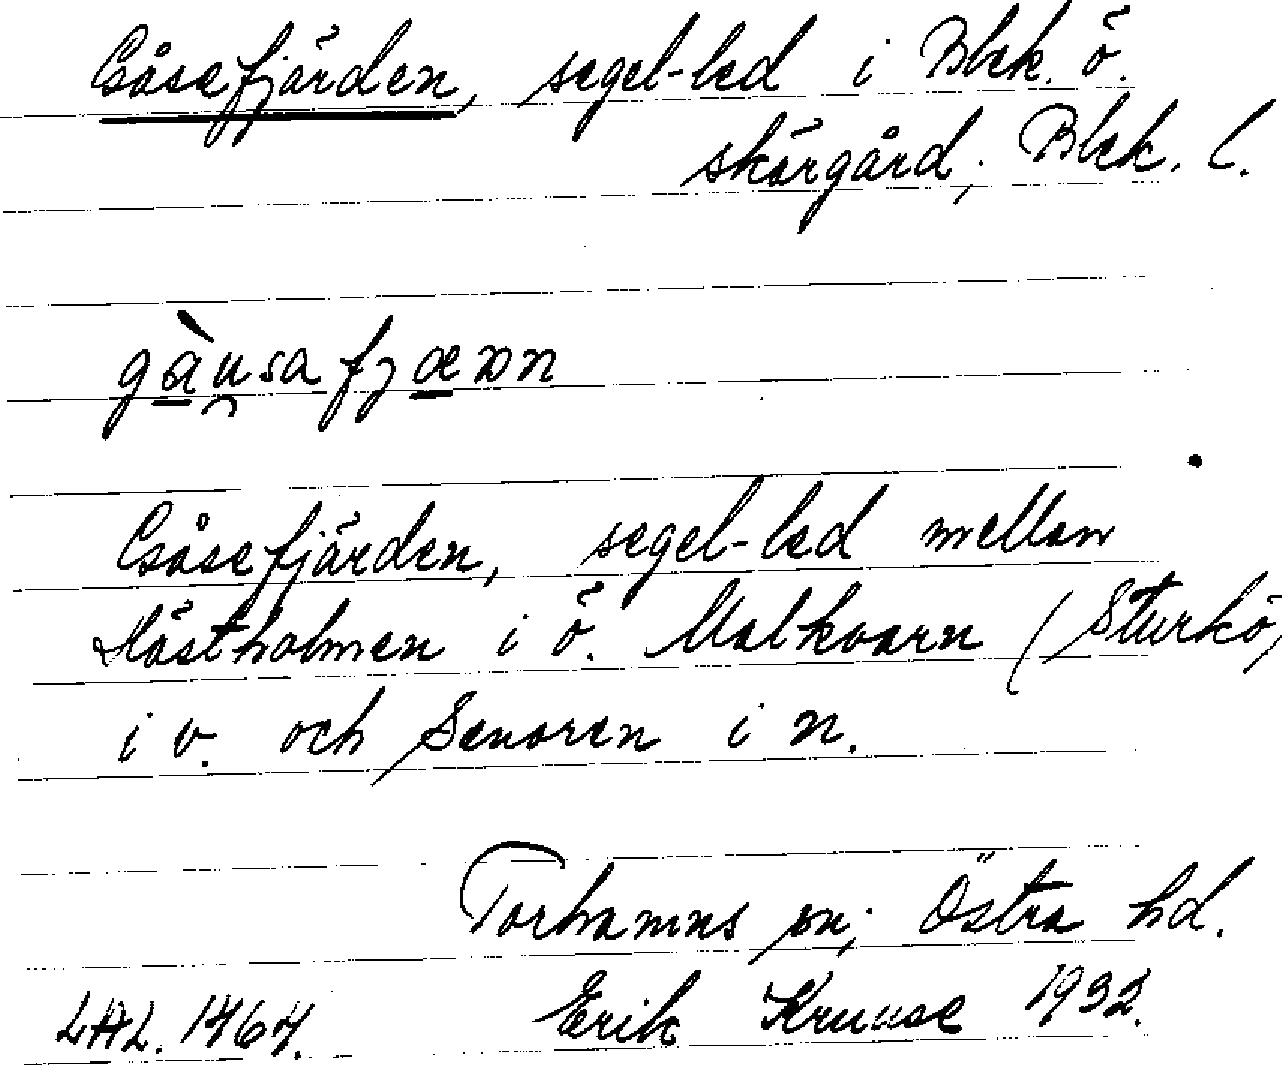 Gåsefjärden, segel-led i Blek. ö.
skärgård; Blek. l.
gàu̯safjæᴅn
Gåsefjärden, segel-led mellan
Hästholmen i ö. Malkvarn (Sturkö)
i v. och Senoren i n.
Torhamns sn; Östra hd.
LAL. 1464. Erik Kruuse 1932.